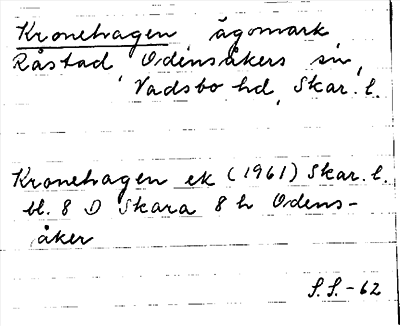 Kronehagen ägomark
Råstad, Odensåkers sn,
Vadsbo hd, Skar. l.
Kronehagen ek (1961) Skar. l.
bl. 8 D Skara 8 h Odens-
åker
S.S.-62